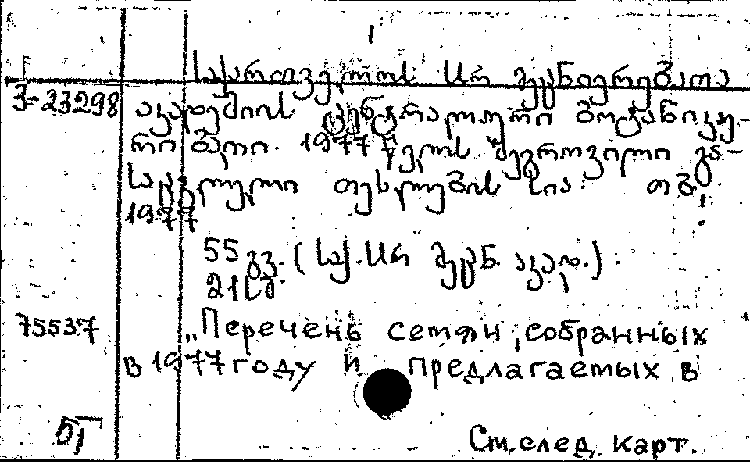 1
საქართველოს სსრ მეცნიერებათა
3-23298 აკადემიის ცენტრალური ბოტანიკუ-
რი ბაღი. 1977 წელს შეგროვილი გა-
საცვლელი თესლების სია. თბ.,
1977
55 გვ. (საქ. სსრ მეცნ. აკად.).
21 სმ.
75537 „Перечень семян, собранных
в 1977 году и предлагаемых в
См. след. карт.